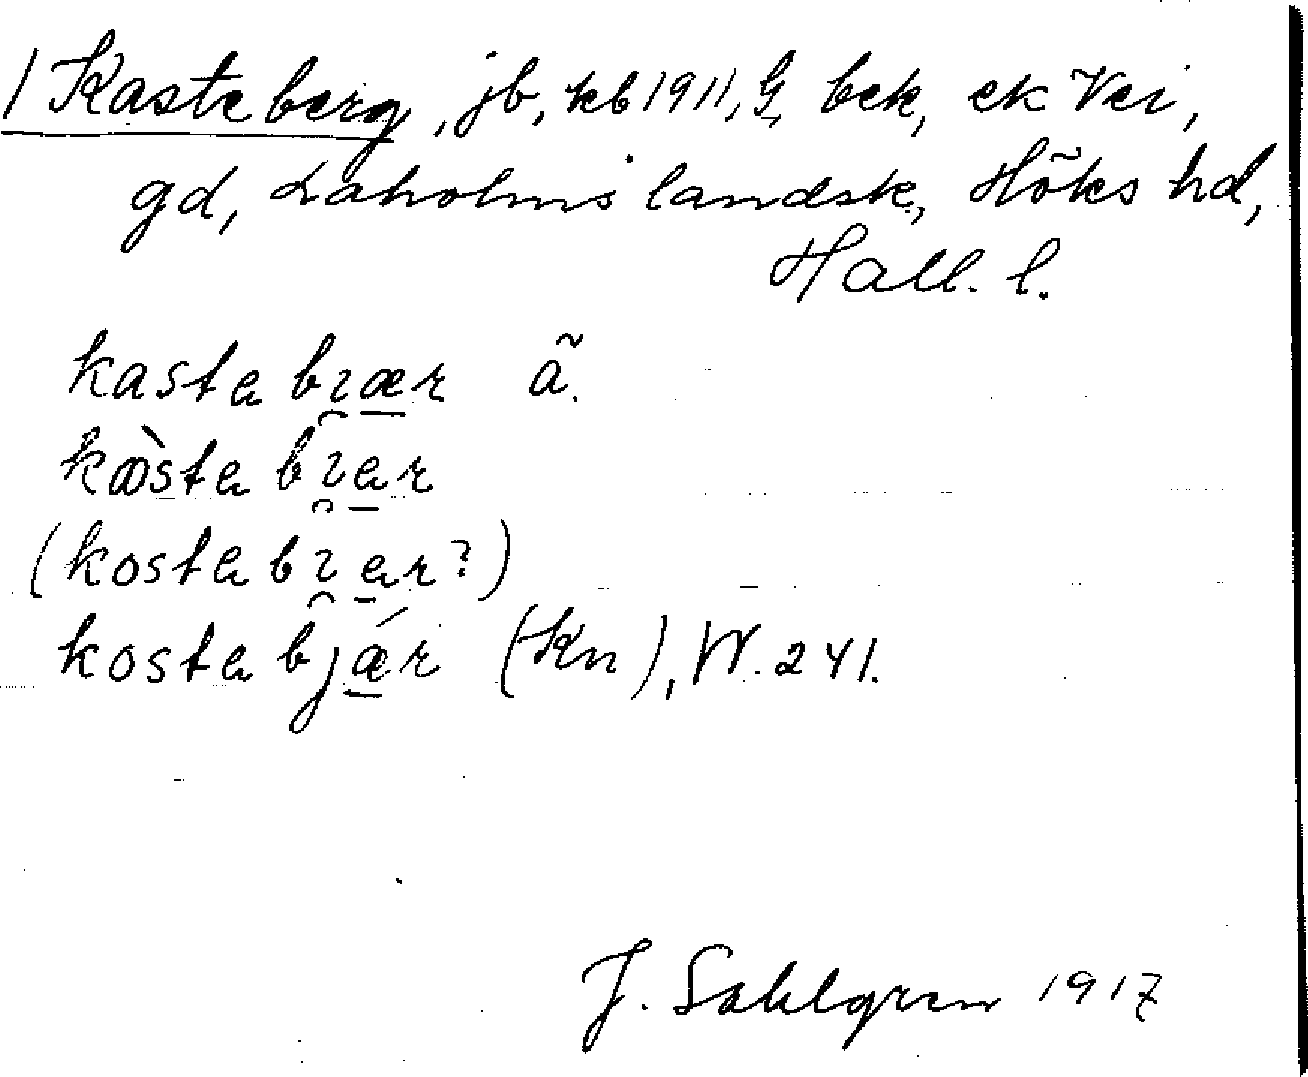 1 Kasteberg, jb, kb 1911, G, bek, ek Vei,
gd, Laholms landsk., Höks hd,
Hall. l.
kasta bıær ã.
kàsta bıar
(kosta bıar?)
kosta bjǽr (Kn), W. 241.
J. Sahlgren 1917